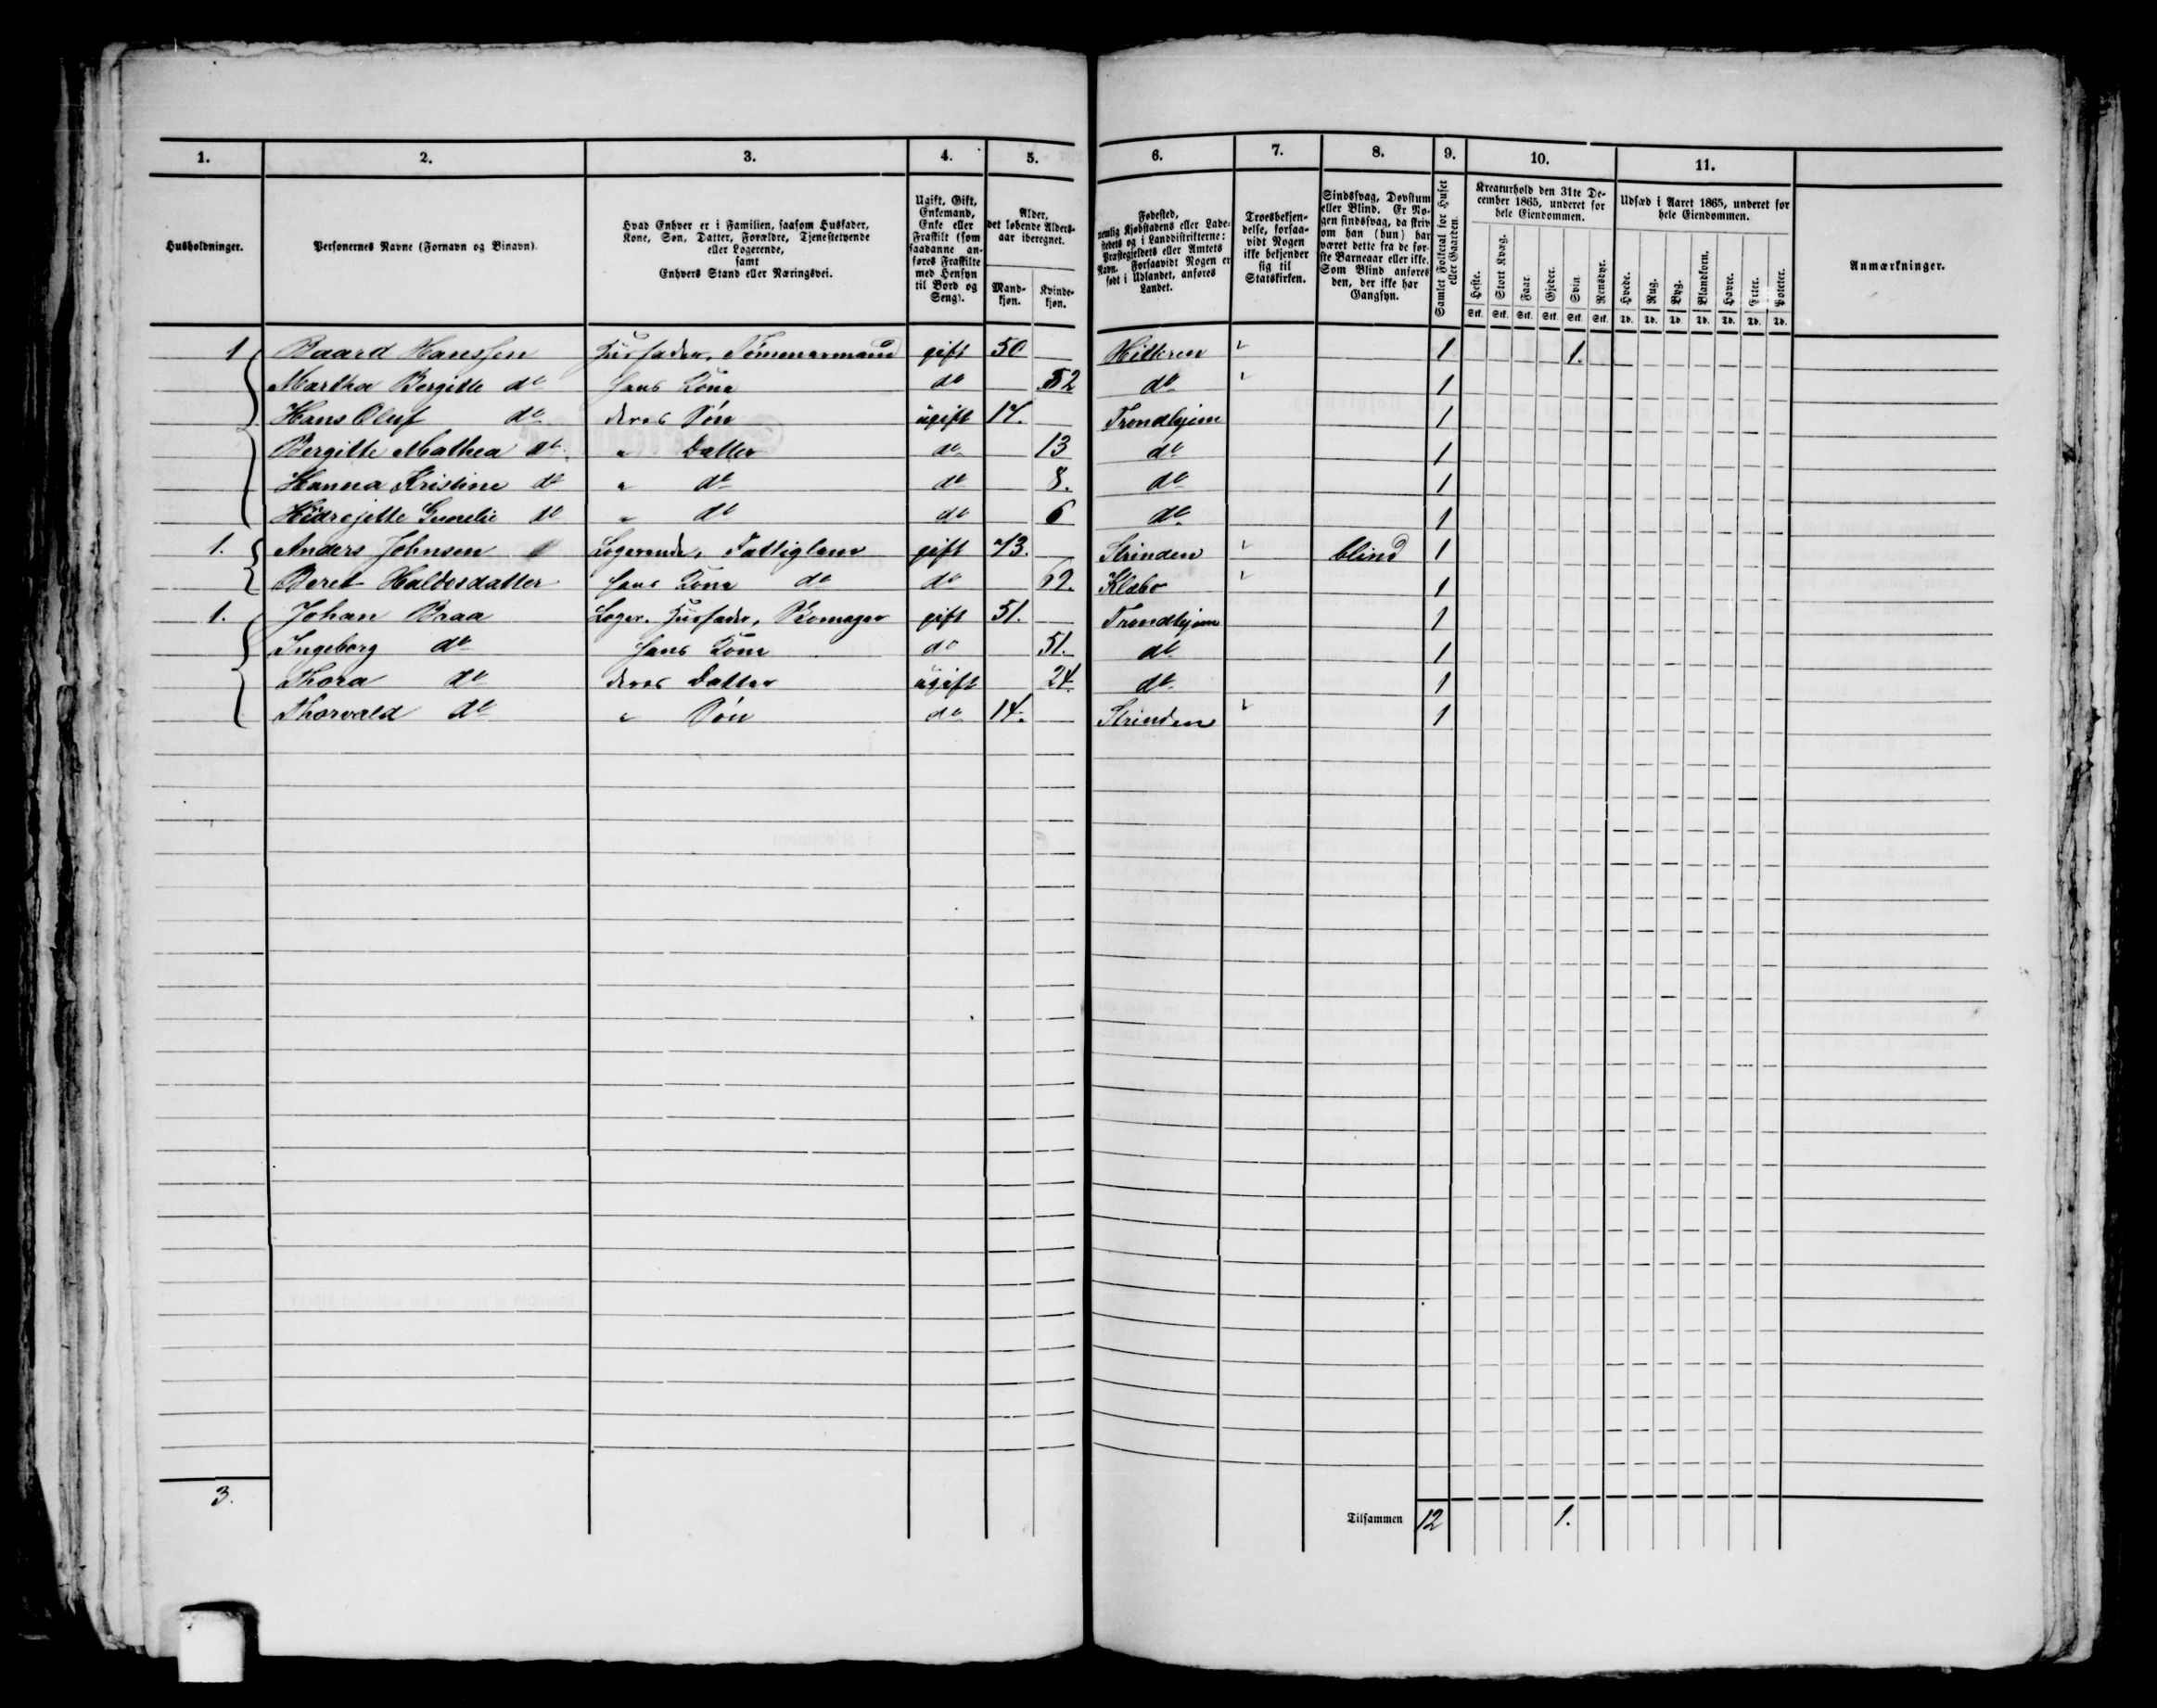 1. 2. 3. 4. 5. 6. 7. 8. 9. 10. 11.
Husholdninger.
Personernes Navne (Fornavn og Binavn).
Hvad Enhver er i Familien, saasom Husfader,
Kone, Søn, Datter, Forældre, Tjenestetyende
eller Logerende,
samt
Enhvers Stand eller Næringsvei.
Ugift, Gift,
Enkemand,
Enke eller
Fraskilt (som
saadanne an-
føres Fraskilte
med Hensyn
til Bord og
Seng).
Alder,
det løbende Alders-
aar iberegnet.
Mand-
kjøn.
Kvinde-
kjøn.
Fødested,
nemlig Kjøbstadens eller Lade-
stedets og i Landdistrikterne:
Præstegjeldets eller Amtets
Navn. Forsaavidt Nogen er
født i Udlandet, anføres
Landet.
Troesbekjen-
delse, forsaa-
vidt Nogen
ikke bekjender
sig til
Statskirken.
Sindssvag, Døvstum
eller Blind. Er No-
gen sindssvag, da skriv
om han (hun) har
været dette fra de før-
ste Barneaar eller ikke.
Som Blind anføres
den, der ikke har
Gangsyn.
Samlet Folketal for Huset
eller Gaarden.
Kreaturhold den 31te De-
cember 1865, underet for
hele Eiendommen.
Heste. Stort Kvæg. Faar. Gjeder. Svin. Rensdyr.
Stk. Stk. Stk. Stk. Stk. Stk.
Udsæd i Aaret 1865, underet for
hele Eiendommen.
Hvede. Rug. Byg. Blandkorn. Havre. Erter. Poteter.
Td. Td. Td. Td. Td. Td. Td.
Anmærkninger.
1 Baard Hanssen Husfader, Tømmermand gift 50 Hitteren 1 1.
Martha Bergitte do hans Kone do 52 do 1
Hans Oluf do deres Søn ugift 17. Trondhjem 1
Bergitte Mathea do " Datter do 13 do 1
Hanna Kristine do " do do 8. do 1
do " do do 6 do 1
1. Anders Johnsen Logerende, Fattiglem gift 73. Strinden blind 1
Beret Haldosdatter hans Kone do do 62. Klæbo 1
1. Johan Braa Loger. Husfader, Skomager gift 51. Trondhjem 1
Ingeborg do hans Kone do 51. do 1
Thora do deres Datter ugift 24. do 1
Thorvald do " Søn do 14. Strinden 1
3. Tilsammen 12 1.